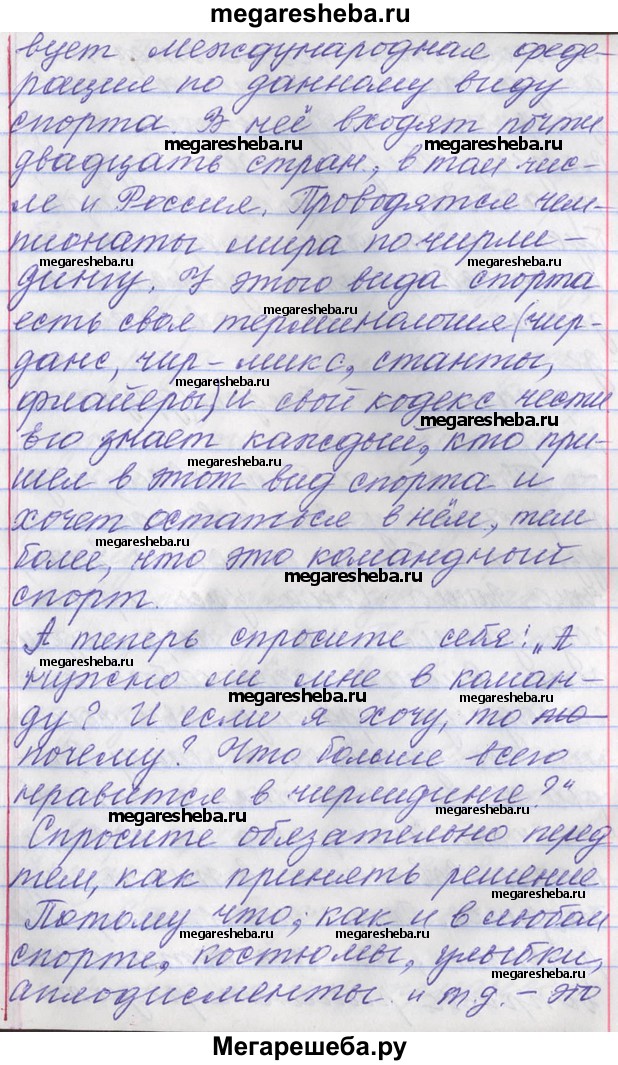 megaresheba.ru
вует международная феде-
рация по данному виду
спорта. В неё входят почти
megaresheba.ru megaresheba.ru
двадцать стран, в том чис-
ле и Россия. Проводятся чем-
пионаты мира по чирли-
megaresheba.ru megaresheba.ru
дингу. У этого вида спорта
megaresheba.ru
есть своя терминология (чир-
данс, чир-микс, станты,
megaresheba.ru
флайеры) и свой кодекс чести.
megaresheba.ru
Его знает каждый, кто при-
megaresheba.ru
шел в этот вид спорта и
хочет остаться в нём, тем
megaresheba.ru
более, что это командный
megaresheba.ru
спорт.
А теперь спросите себя: „А
megaresheba.ru
нужно ли мне в коман-
megaresheba.ru megaresheba.ru
ду? И если я хочу, то по
почему? Что больше всего
megaresheba.ru
нравится в чирлидинге?“
Спросите обязательно перед
megaresheba.ru
тем, как принять решение
megaresheba.ru
Потому что, как и в любом
megaresheba.ru megaresheba.ru
спорте, костюмы, улыбки,
megaresheba.ru
аплодисменты и т.д. – это
Мегарешеба.ру